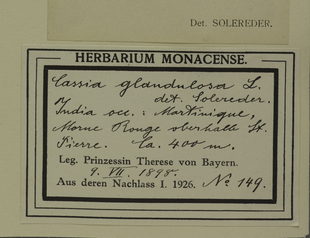 Det. SOLEREDER.
HERBARIUM MONACENSE.
Cassia glandulosa L.
det. Solereder.
India occ.: Martinique,
Morne Rouge oberhalb St.
Pierre. Ca. 400 m.
Leg. Prinzessin Therese von Bayern.
9. VII. 1898.
Aus deren Nachlass I. 1926. No 149.